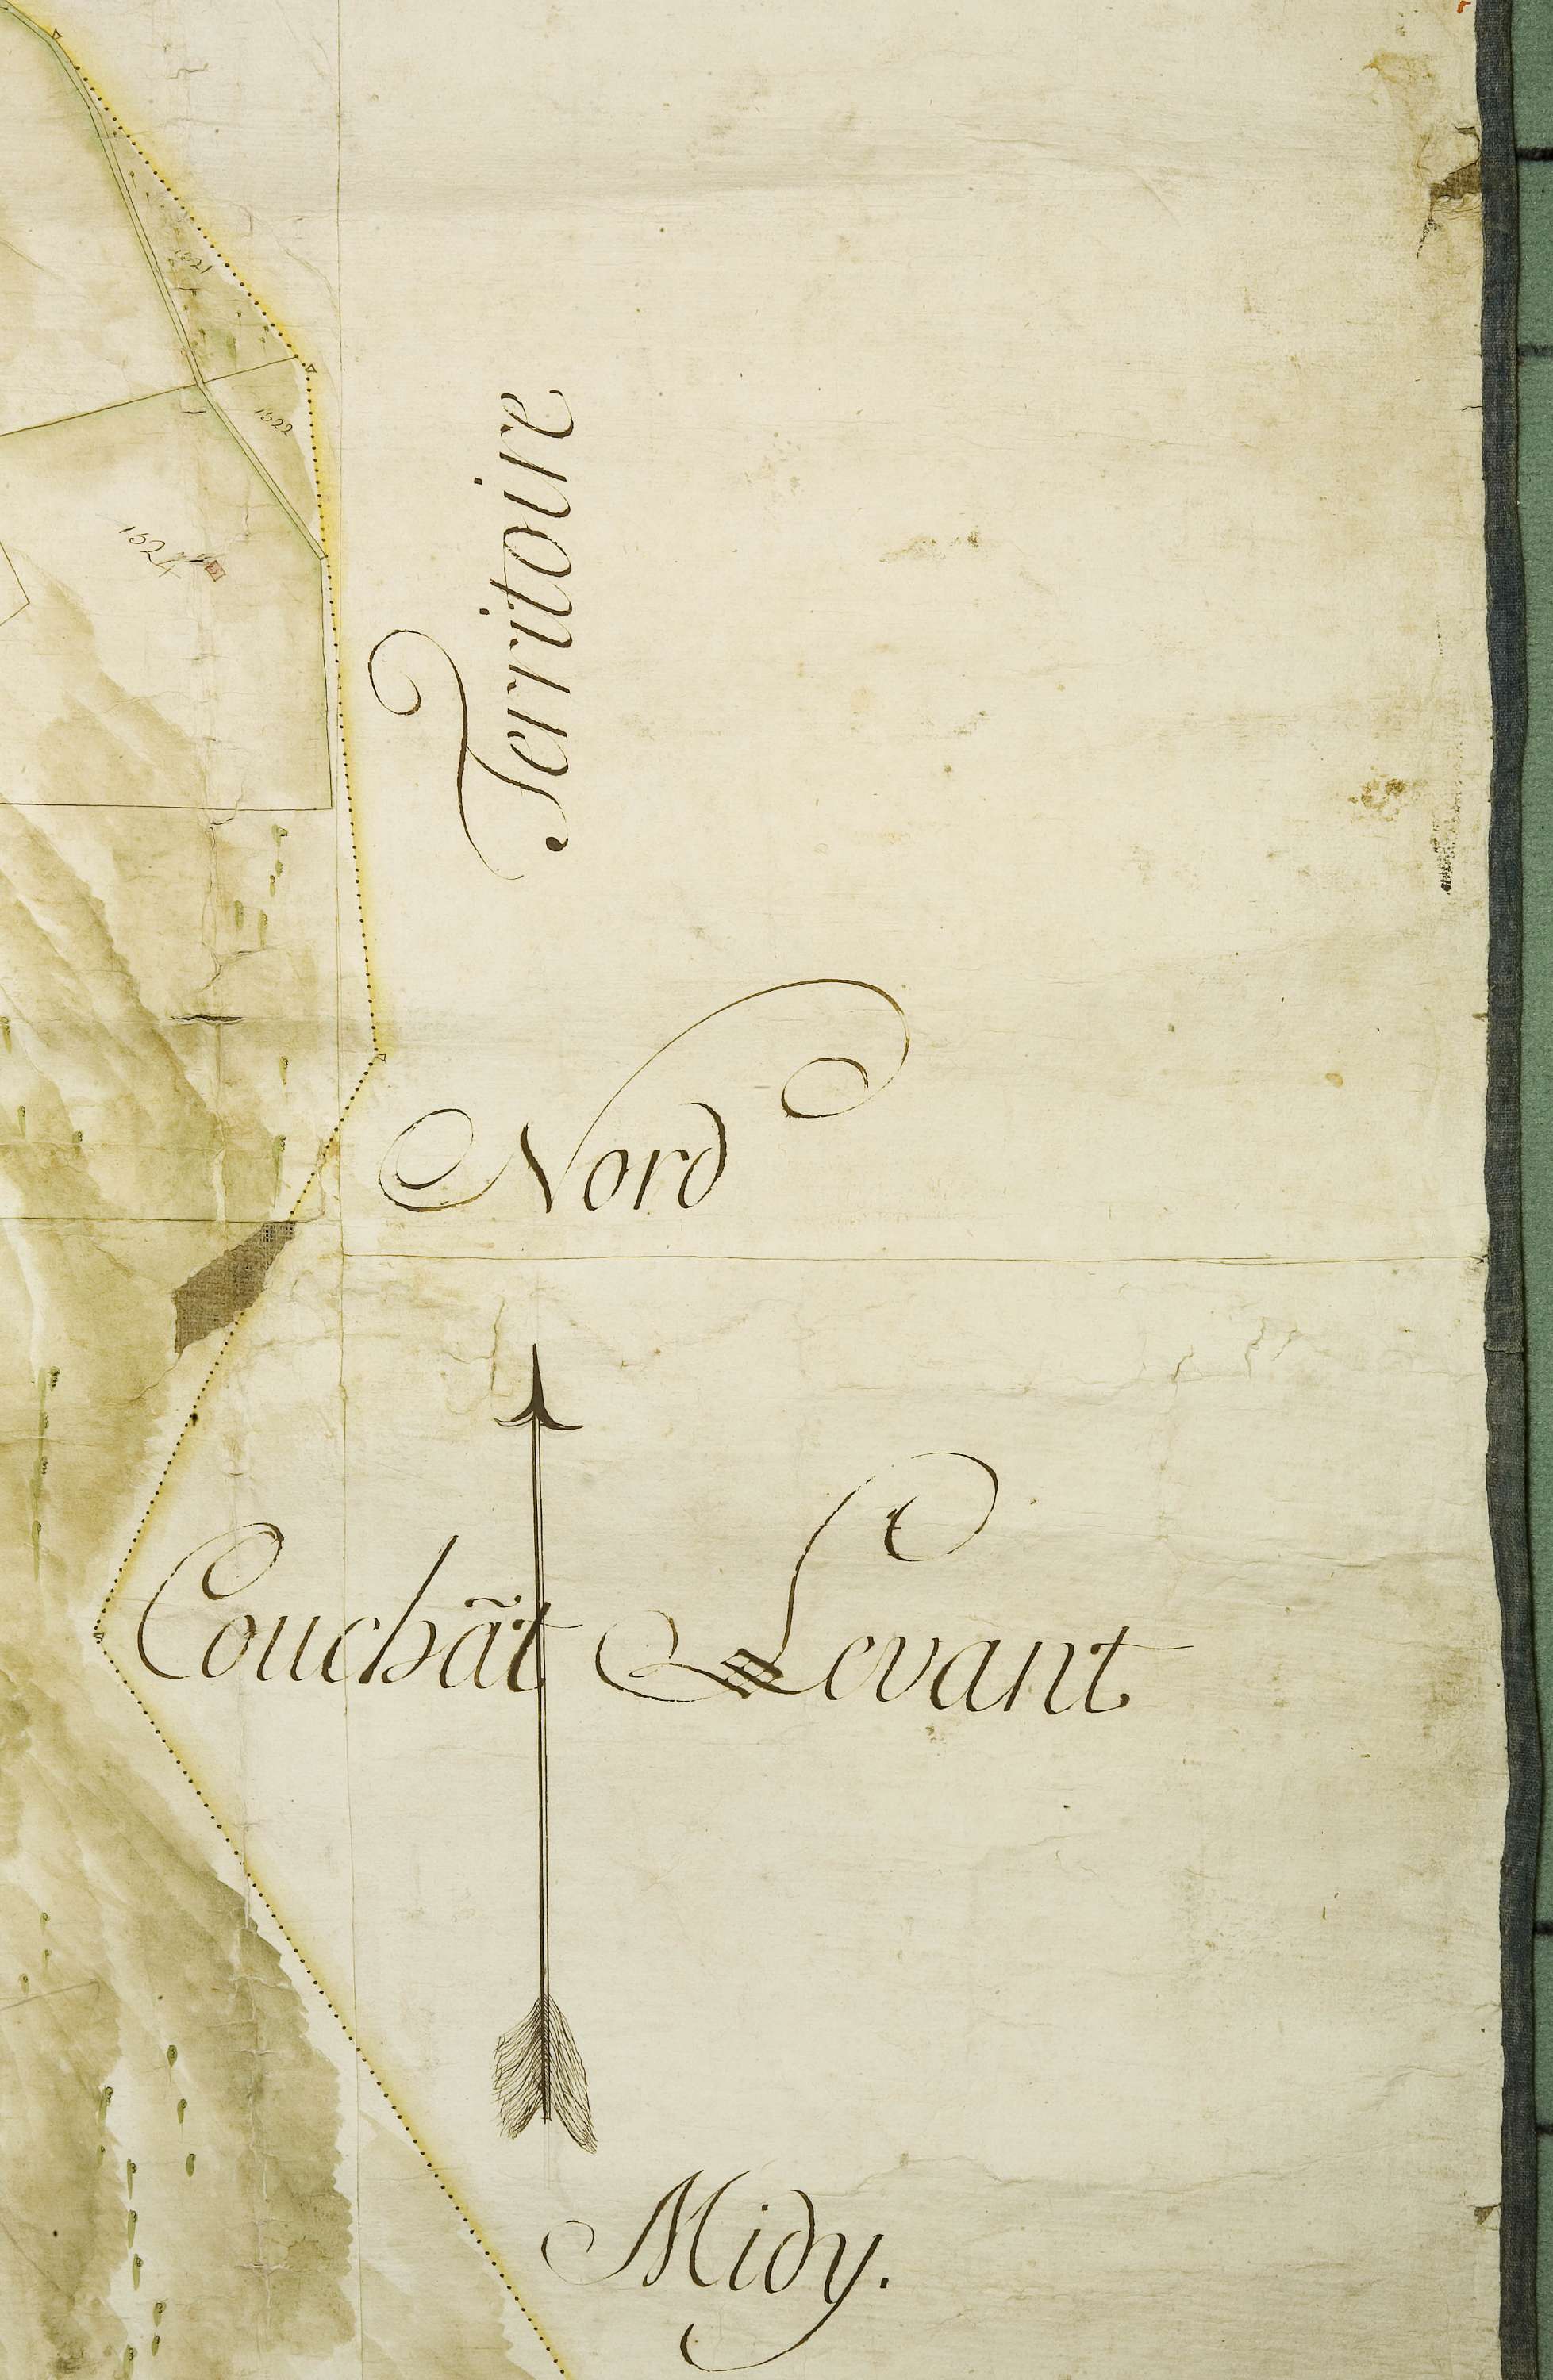 1621
1622
1624
Territoire
Nord
Couchãt
Levant
Midy.